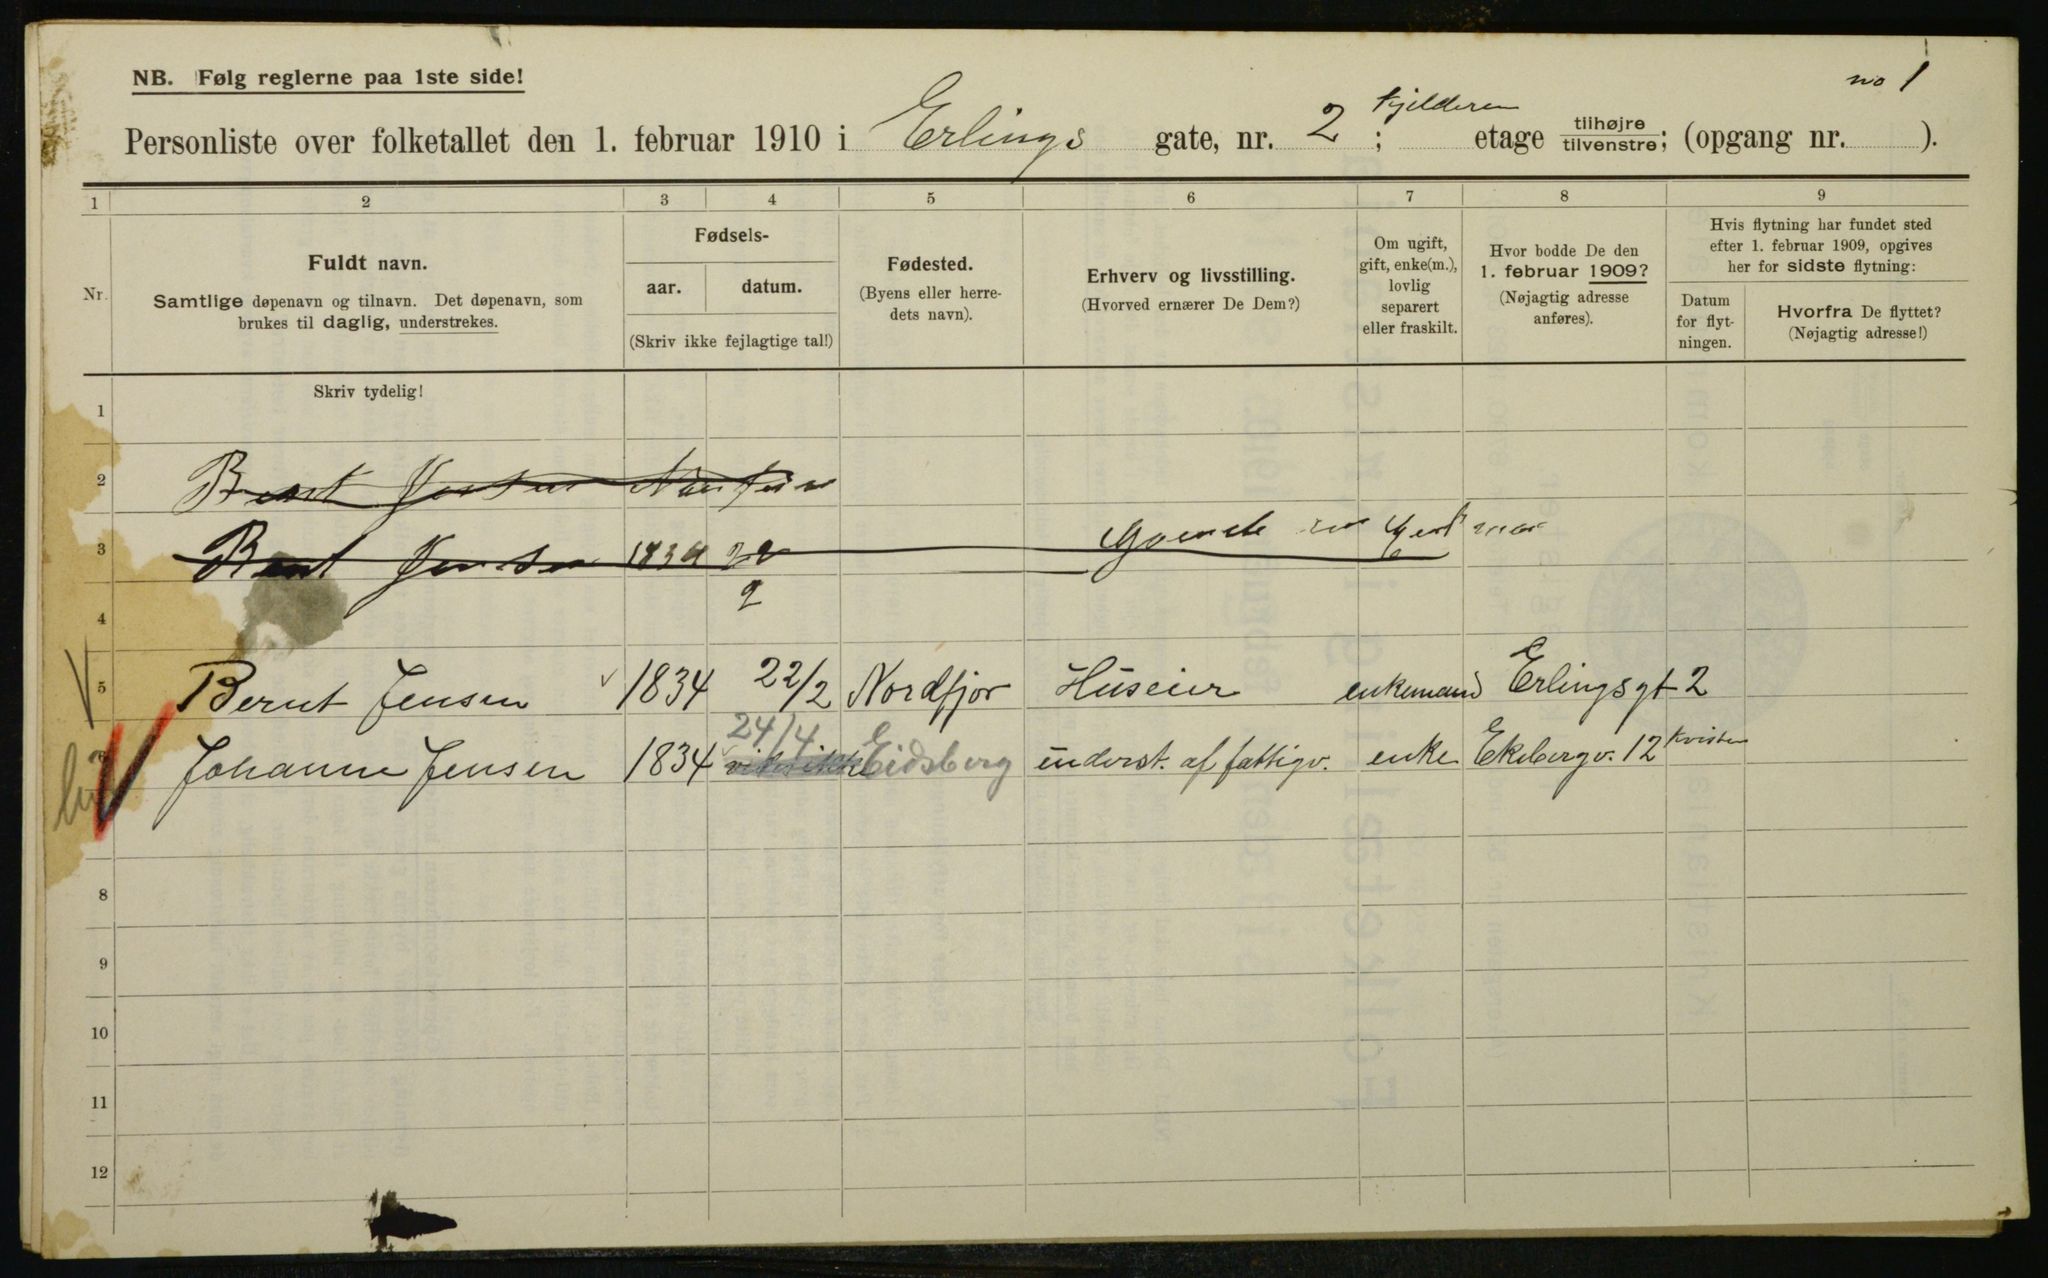 no 1
NB. Følg reglerne paa 1ste side!
Personliste over folketallet den 1. februar 1910 i Erlings gate, nr. 2 ; kjelderen etage tilhøjre/tilvenstre; (opgang nr. ).
1 2 3 4 5 6 7 8 9
Nr.
Fuldt navn.
Samtlige døpenavn og tilnavn. Det døpenavn, som
brukes til daglig, understrekes.
Fødsels-
aar. datum.
(Skriv ikke fejlagtige tal!)
Fødested.
(Byens eller herre-
dets navn).
Erhverv og livsstilling.
(Hvorved ernærer De Dem?)
Om ugift,
gift, enke(m.),
lovlig
separert
eller fraskilt.
Hvor bodde De den
1. februar 1909?
(Nøjagtig adresse
anføres).
Hvis flytning har fundet sted
efter 1. februar 1909, opgives
her for sidste flytning:
Datum
for flyt-
ningen.
Hvorfra De flyttet?
(Nøjagtig adresse!)
Skriv tydelig!
1
2 Bernt Jensen
3 Bernt Jensen
4
5 Bernt Jensen 1834 22/2 Nordfjor Huseier enkemand Erlingsgt 2
24/4
6 Johanne Jensen 1834 Eidsberg underst. af fattigv. enke Ekebergv. 12 kvisten
8
9
10
11
12